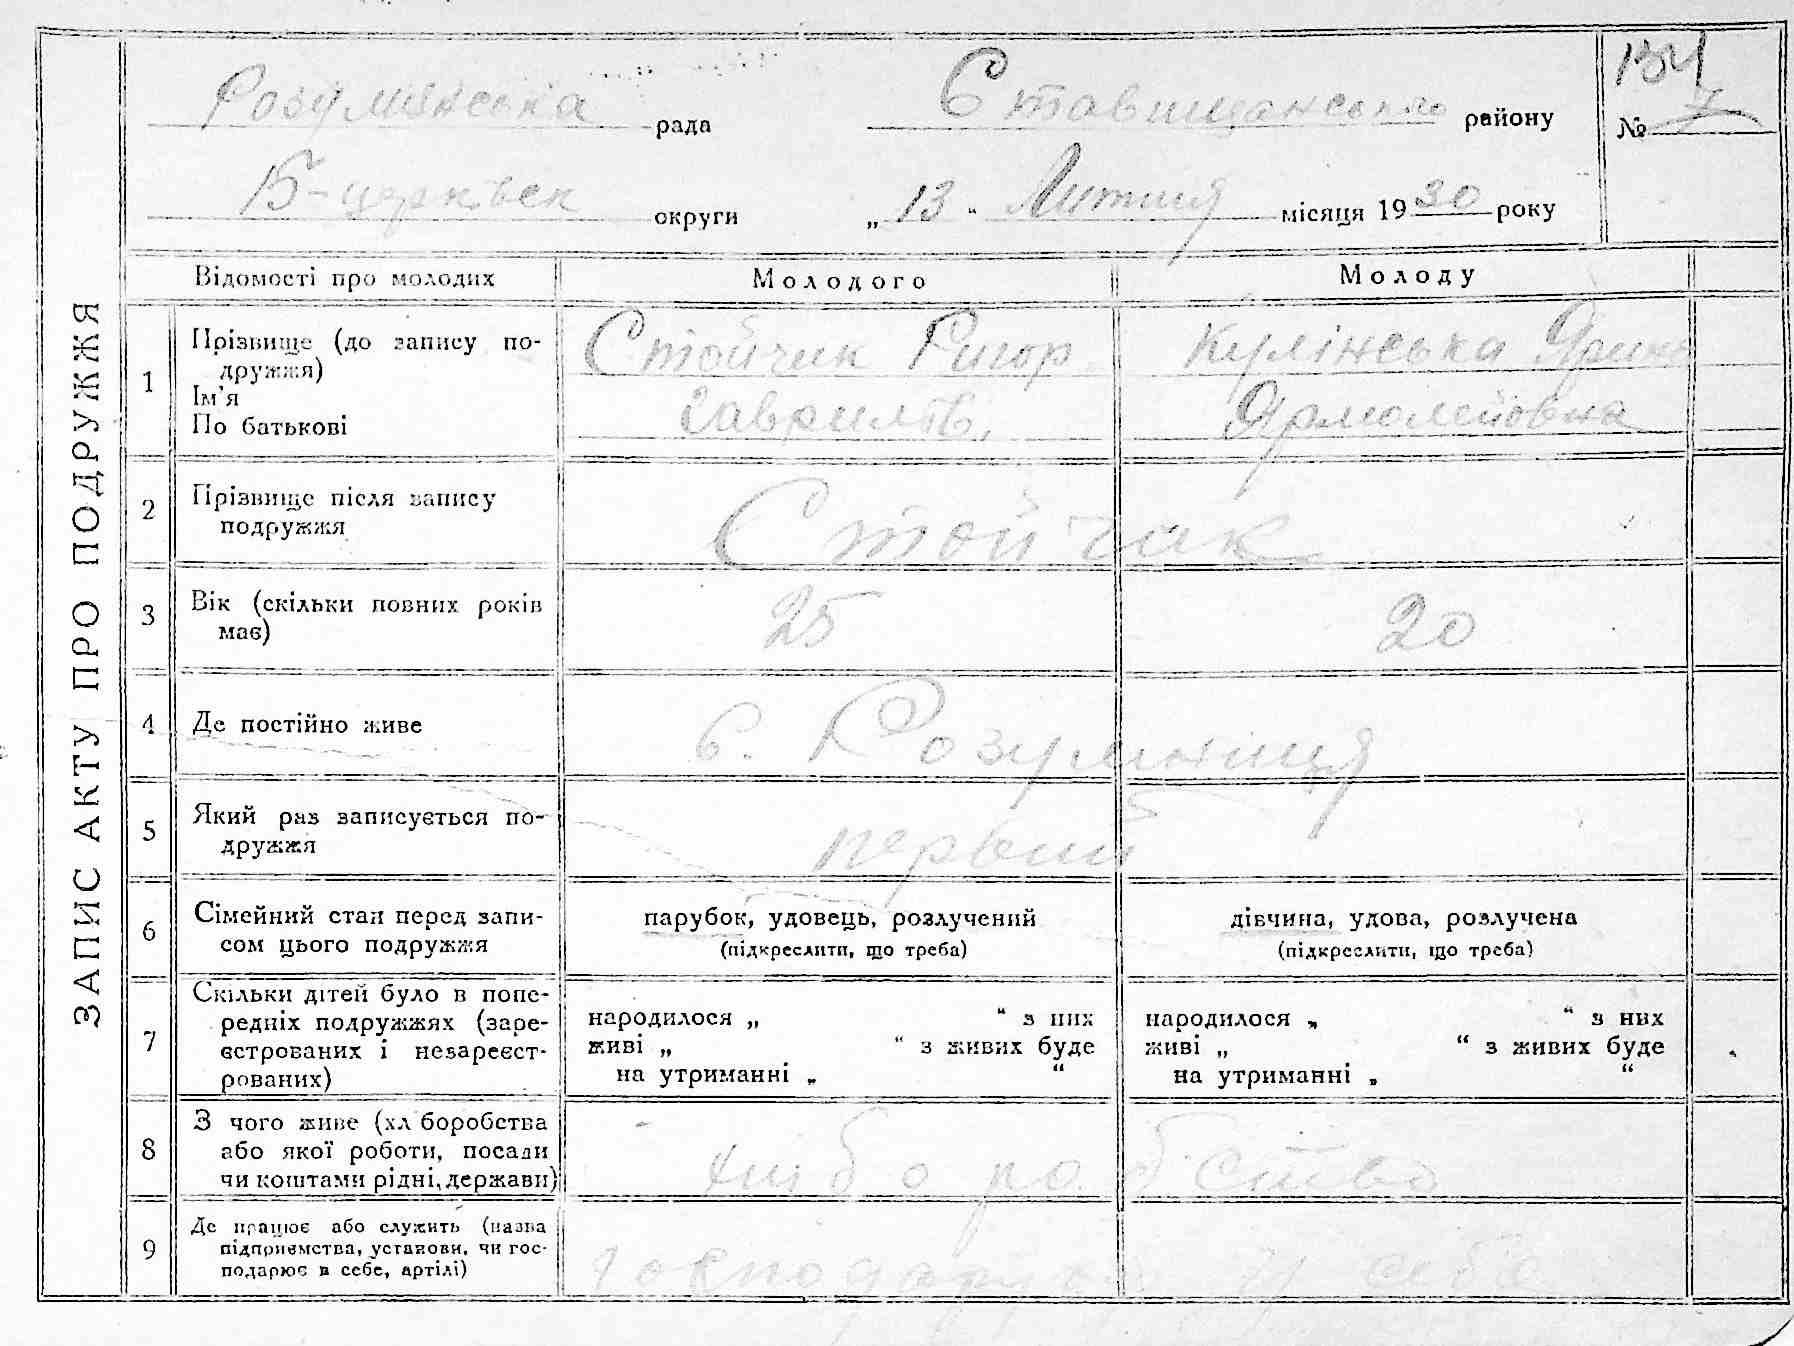 ЗАПИС АКТУ ПРО ПОДРУЖЖЯ
Розумінська рада Ставищанського району
134
№ 7
Б-церківськ округи „13“ Лютня місяця 1930 року
Відомості про молодих Молодого Молоду
1 Прізвище (до запису подружжя)
Ім'я
По батькові
Стойчик Ригор
Гаврилів.
Кулінська Ярина
Ярмолейовна
2 Прізвище після запису
подружжя
Стойчик
3 Вік (скільки повних років
має)
25 20
4 Де постійно живе с. Розумниця
5 Який раз записується по-
дружжя
первий
6 Сімейний стан перед запи-
сом цього подружжя
парубок, удовець, розлучений
(підкреслити, що треба)
дівчина, удова, розлучена
(підкреслити, що треба)
7 Скільки дітей було в попе-
редніх подружжях (заре-
єстрованих і незареєст-
рованих)
народилося „ “ з них
живі „ “ з живих буде
на утриманні „ “
народилося „ “ з них
живі „ “ з живих буде
на утриманні „ “
8 З чого живе (хліборобства
або якої роботи, посади
чи коштами рідні, держави)
хліборобство
9 Де працює або служить (назва
підприємства, установи, чи гос-
подарює в себе, артілі)
господарює у себе